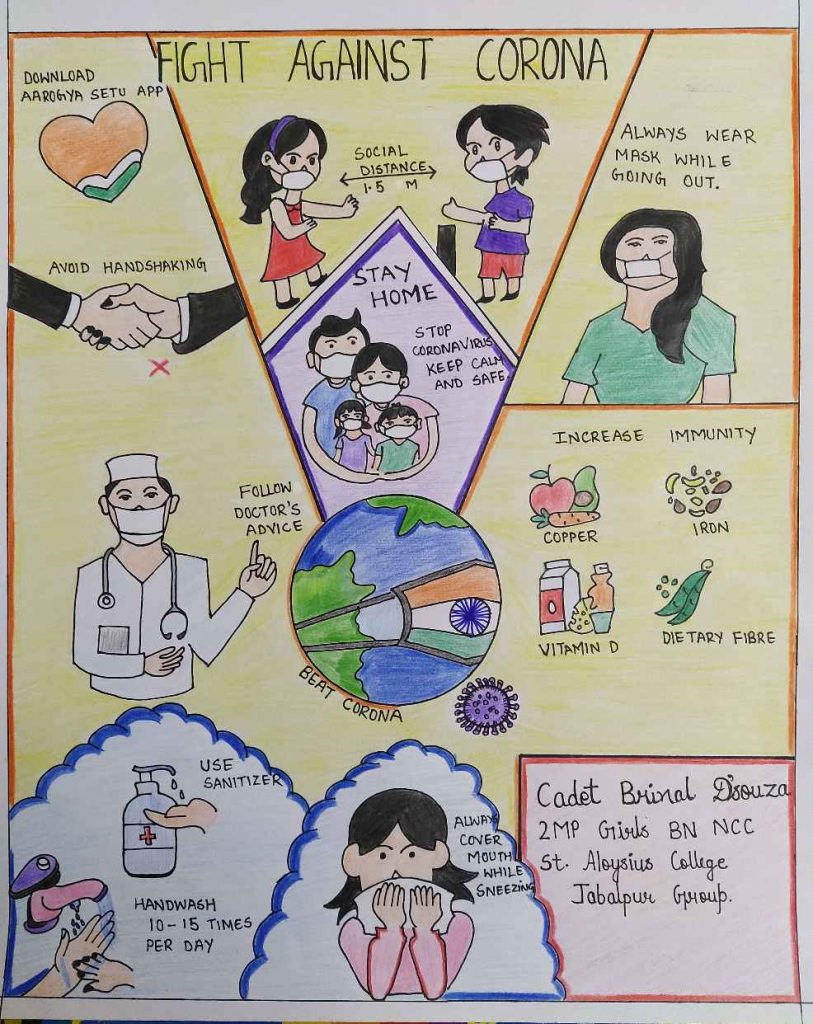 FIGHT AGAINST CORONA
DOWNLOAD
AAROGYA SETU APP
SOCIAL
DISTANCE
1.5 M
ALWAYS WEAR
MASK WHILE
GOING OUT.
AVOID HANDSHAKING
STAY
HOME
STOP
CORONAVIRUS
KEEP CALM
AND SAFE
FOLLOW
DOCTOR'S
ADVICE
INCREASE IMMUNITY
COPPER
IRON
VITAMIN D
DIETARY FIBRE
BEAT CORONA
USE
SANITIZER
HANDWASH
10-15 TIMES
PER DAY
ALWAYS
COVER
MOUTH
WHILE
SNEEZING
Cadet Brinal D'souza
2MP Girls BN NCC
St. Aloysius College
Jabalpur Group.